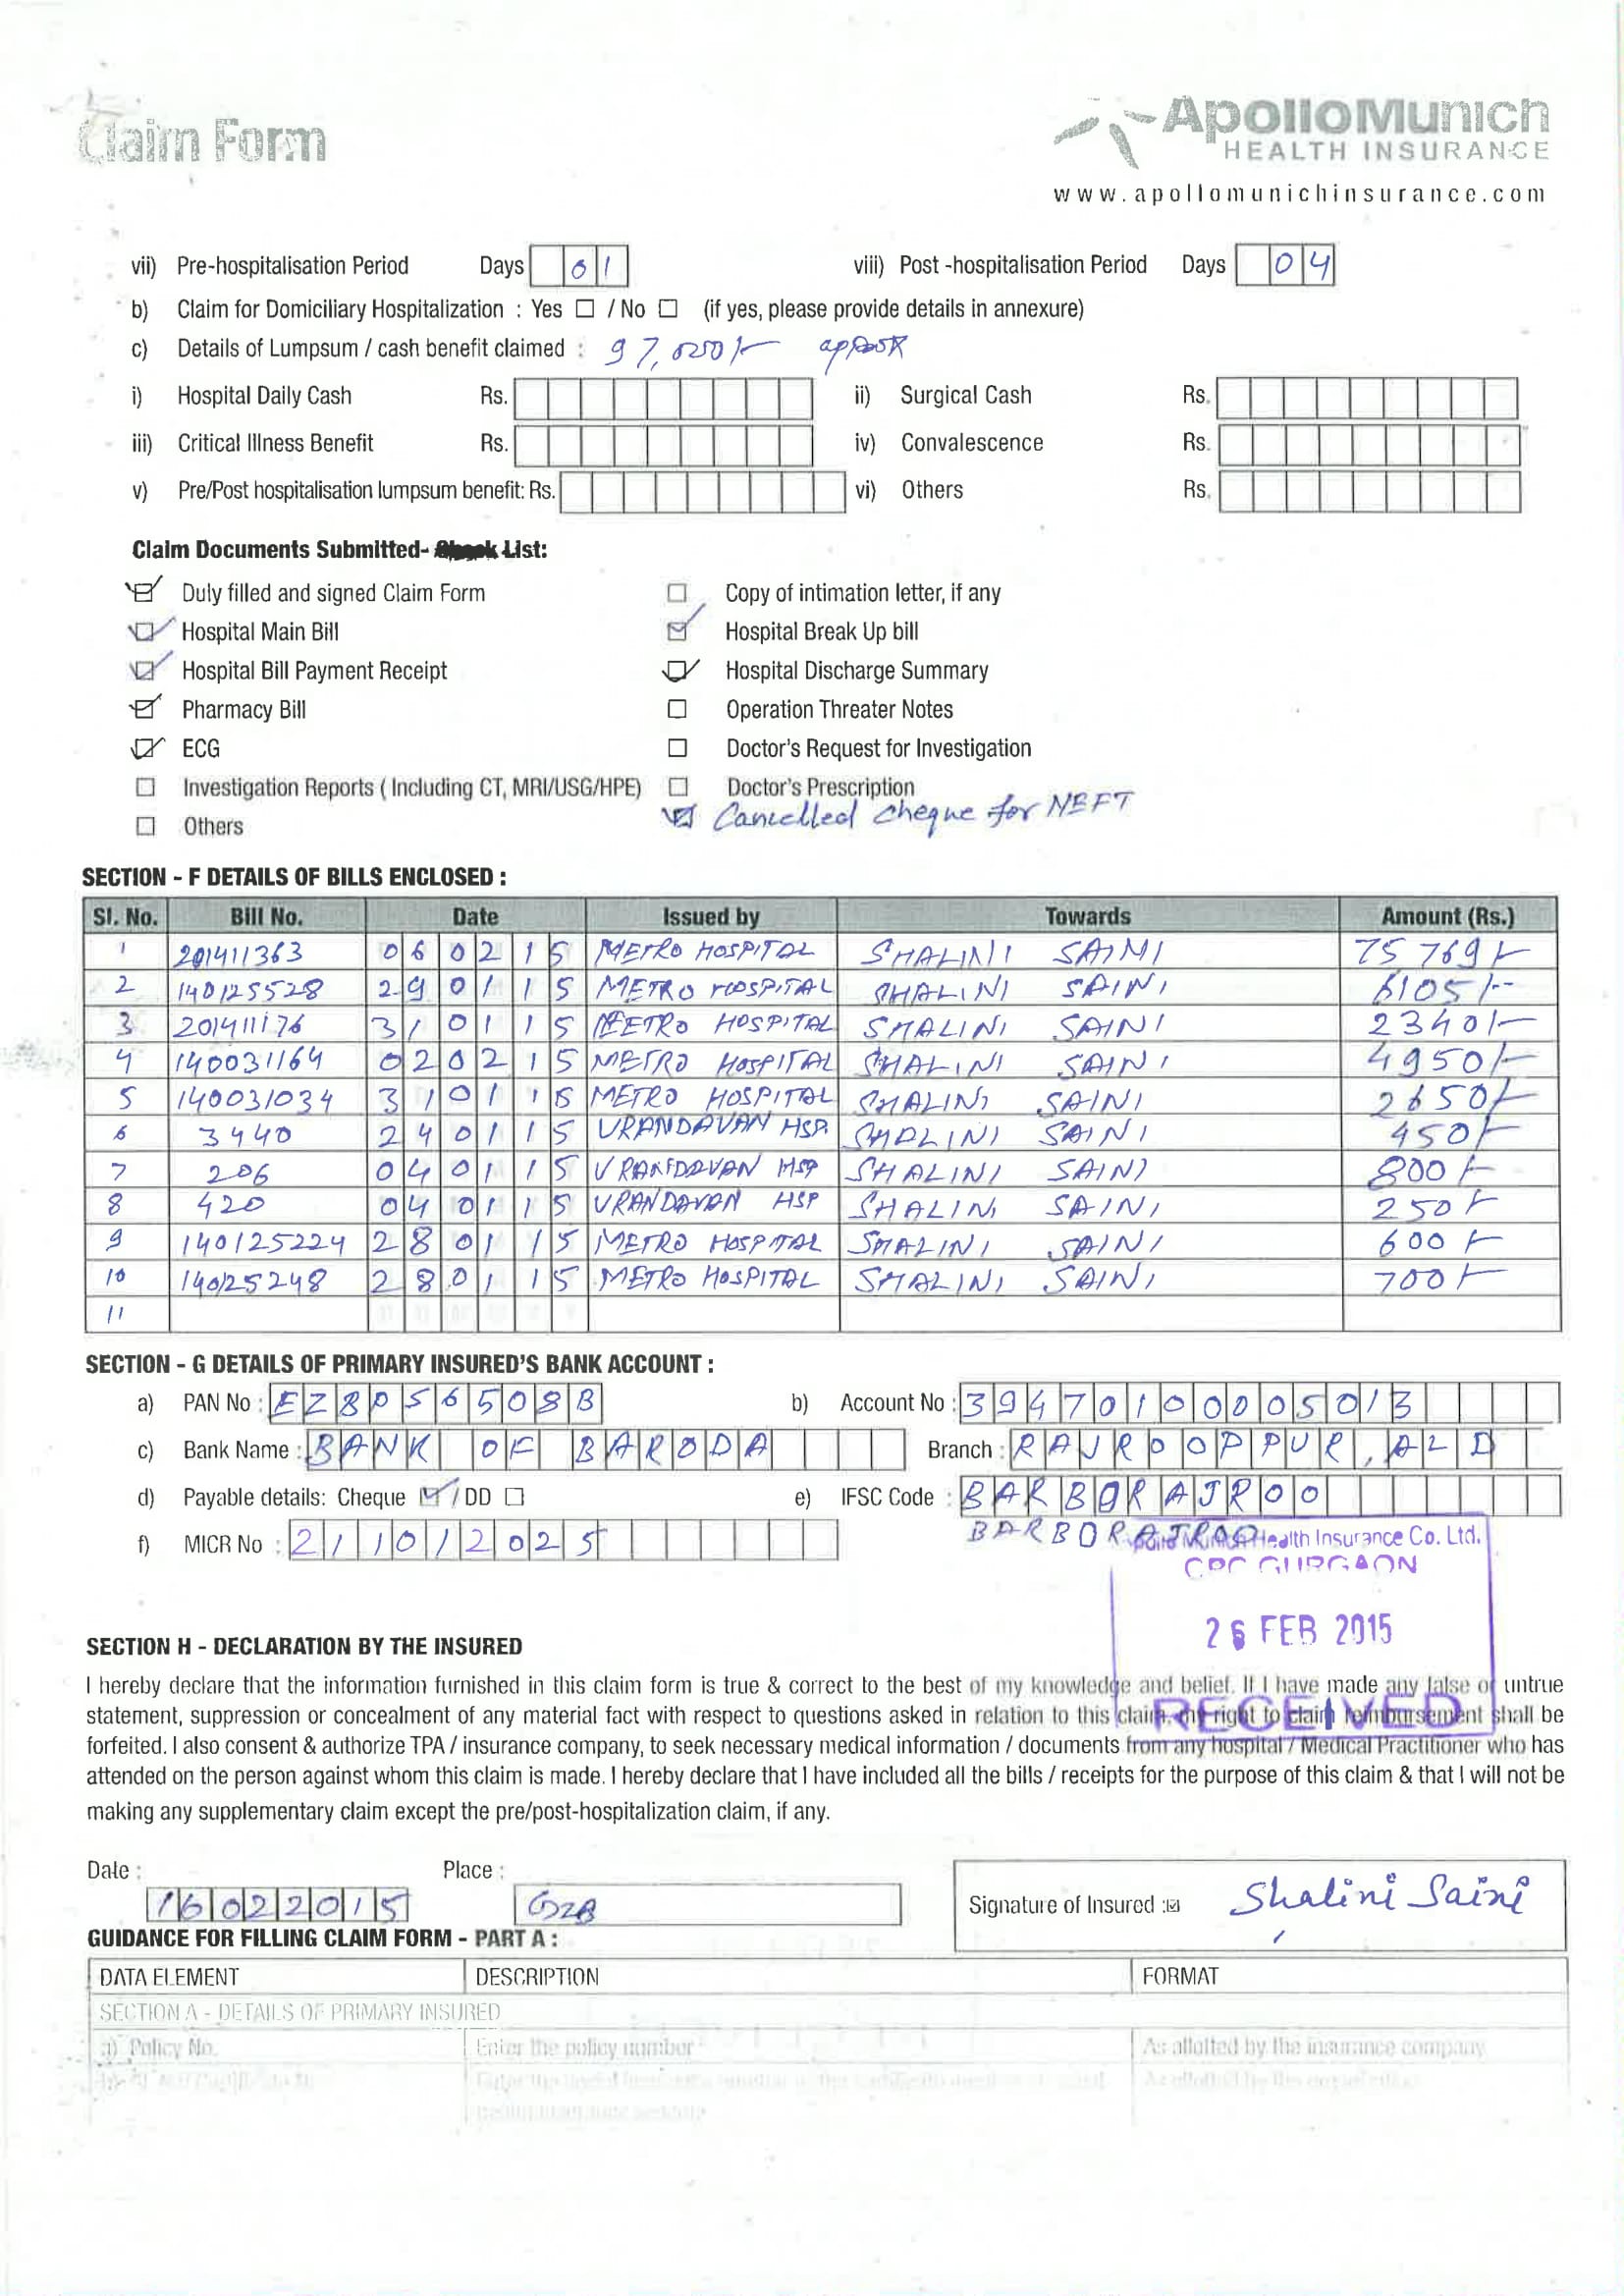 Claim Form
ApolloMunich
HEALTH INSURANCE
www.apollomunichinsurance.com
vii) Pre-hospitalisation Period Days 01 viii) Post -hospitalisation Period Days 04
b) Claim for Domiciliary Hospitalization : Yes ☐ / No ☐ (if yes, please provide details in annexure)
c) Details of Lumpsum / cash benefit claimed : 97,050/- approx
i) Hospital Daily Cash Rs. ii) Surgical Cash Rs.
iii) Critical Illness Benefit Rs. iv) Convalescence Rs.
v) Pre/Post hospitalisation lumpsum benefit: Rs. vi) Others Rs.
Claim Documents Submitted- List:
☑ Duly filled and signed Claim Form ☐ Copy of intimation letter, if any
☑ Hospital Main Bill ☑ Hospital Break Up bill
☑ Hospital Bill Payment Receipt ☑ Hospital Discharge Summary
☑ Pharmacy Bill ☐ Operation Threater Notes
☑ ECG ☐ Doctor's Request for Investigation
☐ Investigation Reports ( Including CT, MRI/USG/HPE) ☐ Doctor's Prescription
☐ Others ☑ Cancelled cheque for NEFT
SECTION - F DETAILS OF BILLS ENCLOSED :
Sl. No. Bill No. Date Issued by Towards Amount (Rs.)
1 201411363 060215 METRO HOSPITAL SHALINI SAINI 75769/-
2 140125528 290115 METRO HOSPITAL SHALINI SAINI 6105/--
3 201411176 310115 METRO HOSPITAL SHALINI SAINI 2340/-
4 140031164 020215 METRO HOSPITAL SHALINI SAINI 4950/-
5 140031034 310115 METRO HOSPITAL SHALINI SAINI 2650/-
6 3440 240115 VRANDAVAN HSP. SHALINI SAINI 450/-
7 206 040115 VRANDAVAN HSP SHALINI SAINI 800/-
8 420 040115 VRANDAVAN HSP SHALINI SAINI 250/-
9 140125224 280115 METRO HOSPITAL SHALINI SAINI 600/-
10 140125248 280115 METRO HOSPITAL SHALINI SAINI 700/-
11
SECTION - G DETAILS OF PRIMARY INSURED'S BANK ACCOUNT :
a) PAN No : EZBPS6508B b) Account No : 39470100005013
c) Bank Name : BANK OF BARODA Branch : RAJROOPPUR, ALD
d) Payable details: Cheque ☑ / DD ☐ e) IFSC Code : BARB0RAJR00
f) MICR No : 211012025 BARBORAJROO
Apollo Munich Health Insurance Co. Ltd.
CPC GURGAON
26 FEB 2015
RECEIVED
SECTION H - DECLARATION BY THE INSURED
I hereby declare that the information furnished in this claim form is true & correct to the best of my knowledge and belief. If I have made any false or untrue
statement, suppression or concealment of any material fact with respect to questions asked in relation to this claim, my right to claim reimbursement shall be
forfeited. I also consent & authorize TPA / insurance company, to seek necessary medical information / documents from any hospital / Medical Practitioner who has
attended on the person against whom this claim is made. I hereby declare that I have included all the bills / receipts for the purpose of this claim & that I will not be
making any supplementary claim except the pre/post-hospitalization claim, if any.
Date : Place :
16022015 GZB Signature of Insured : Shalini Saini
GUIDANCE FOR FILLING CLAIM FORM - PART A :
DATA ELEMENT DESCRIPTION FORMAT
SECTION A - DETAILS OF PRIMARY INSURED
a) Policy No. Enter the policy number As allotted by the insurance company